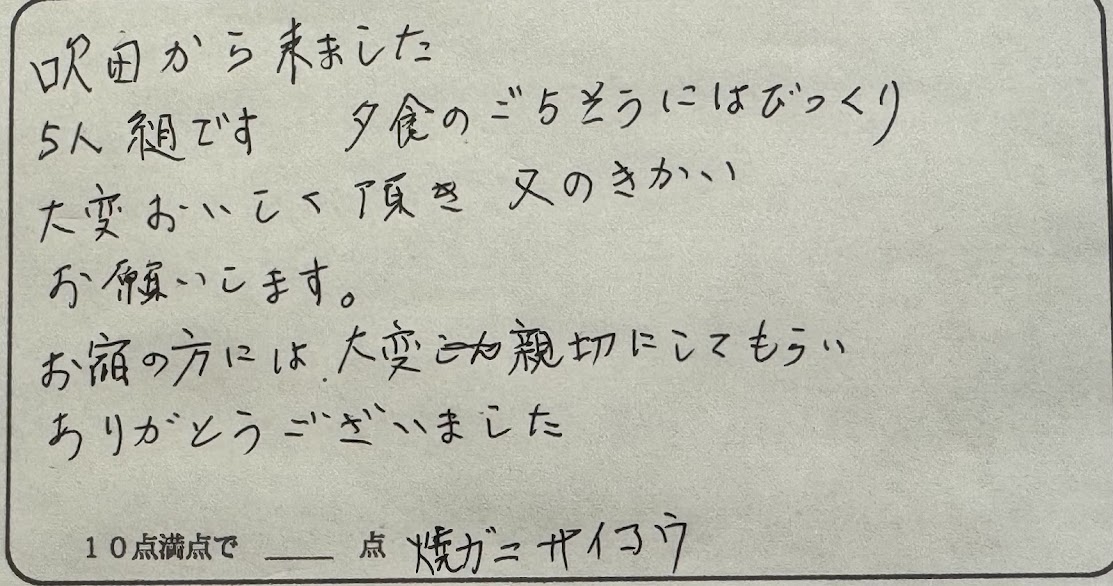 吹田から来ました
5人組です 夕食のごちそうにはびっくり
大変おいしく頂き 又のきかい
お願いします。
お宿の方には大変親切にしてもらい
ありがとうございました
10点満点で ____ 点 焼ガニサイコウ